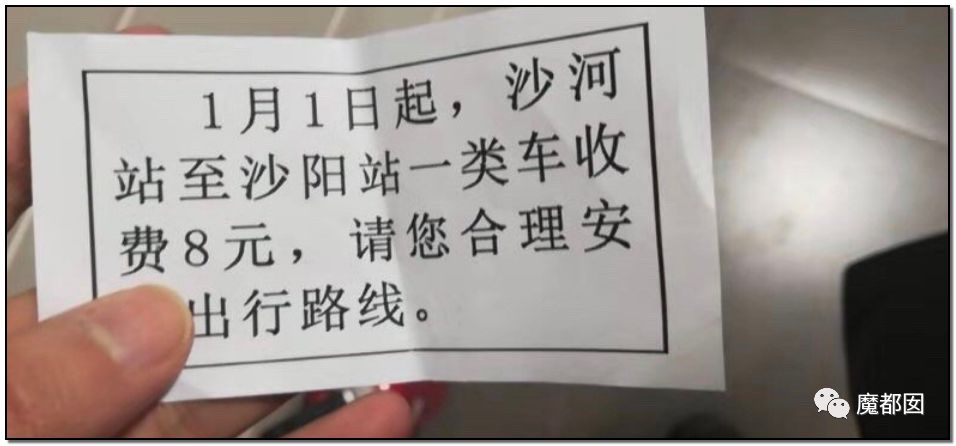 1月1日起，沙河
站至沙阳站一类车收
费8元，请您合理安
出行路线。
魔都囡